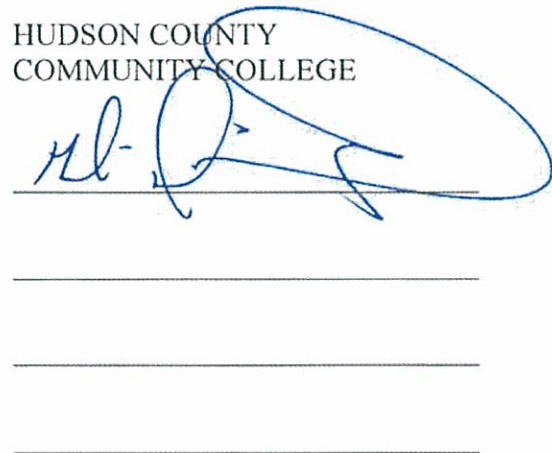 HUDSON COUNTY
COMMUNITY COLLEGE